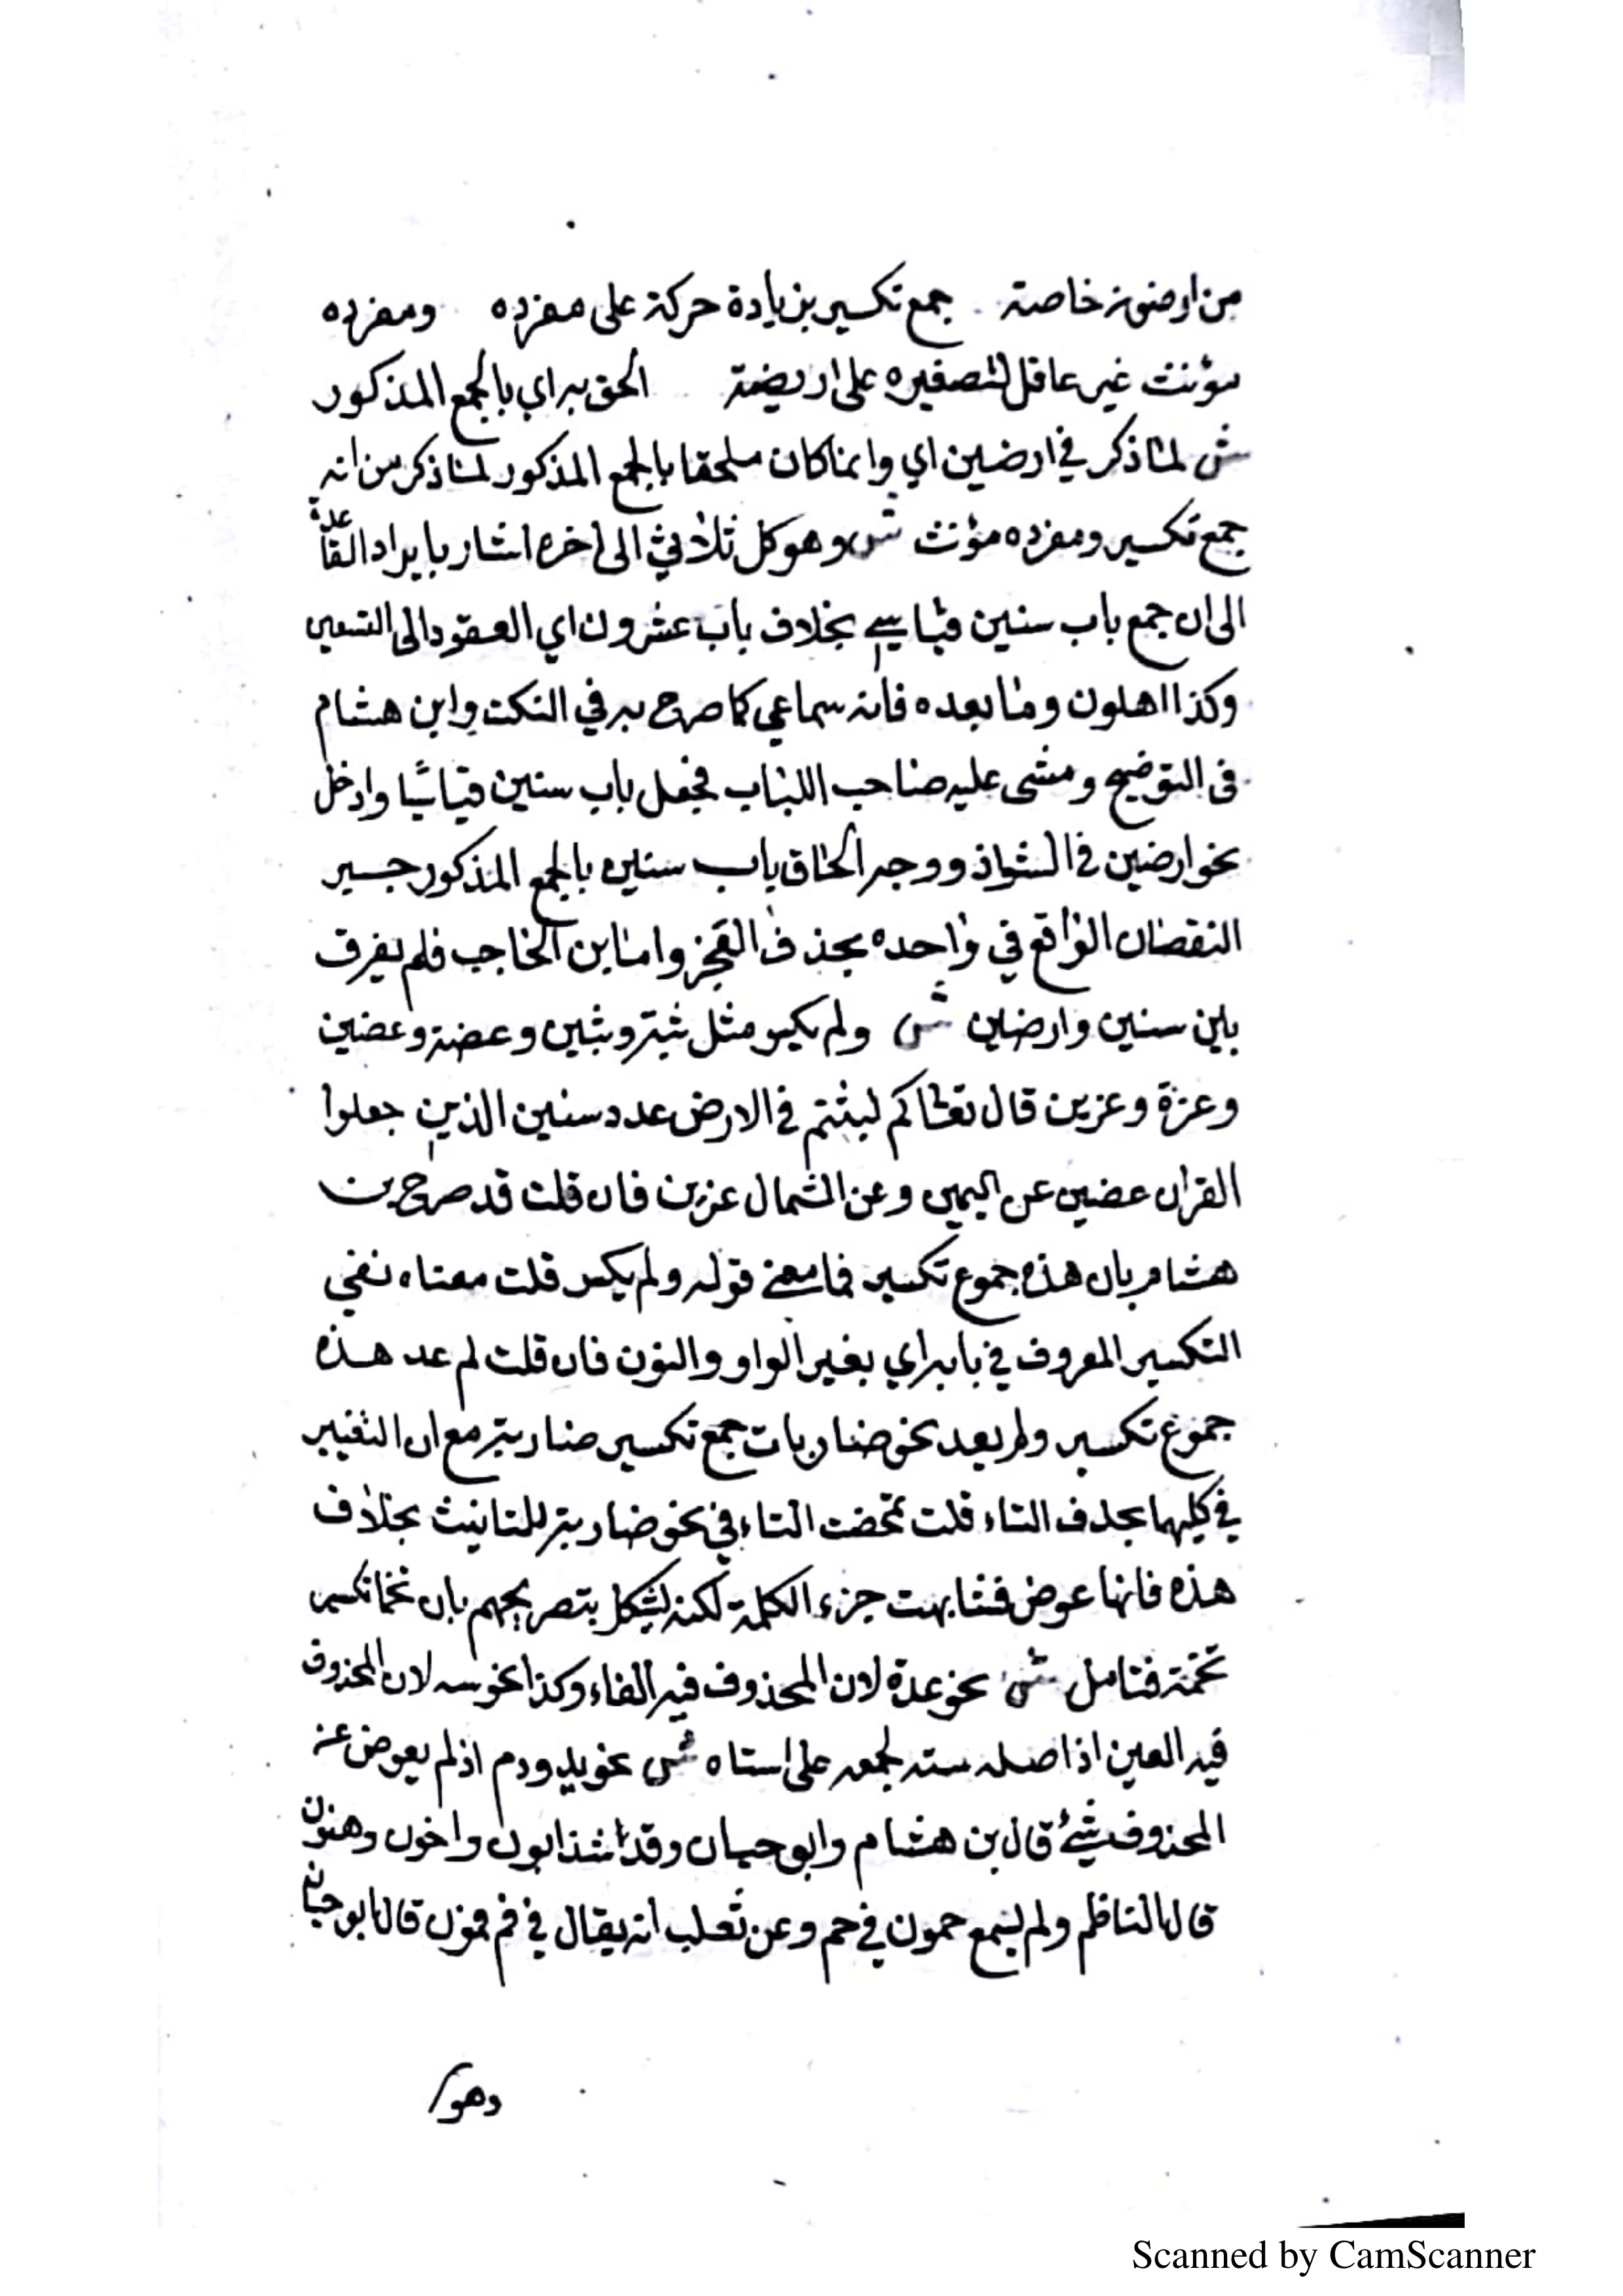 من ارضون خاصة جمع تكسير بزيادة حركة على مفرده ومفرده
مؤنث غير عاقل لتصغيره على اريضة الحق به اي بالجمع المذكور
ش لما ذكر في ارضين اي وانما كان ملحقا بالجمع المذكور لما ذكر من انه
جمع تكسير ومفرده مؤنث ش وهو كل ثلاثي الى اخره اشار بايراد القاعدة
الى ان جمع باب سنين قياسي بخلاف باب عشرون اي العقود الى التسعين
وكذا اهلون وما بعده فانه سماعي كما صرح به في النكت وابن هشام
في التوضيح ومشى عليه صاحب اللباب فجعل باب سنين قياسيا وادخل
نحو ارضين في الشواذ ووجه الحاق باب سنين بالجمع المذكور جبير
النقصان الواقع في واحده بحذف العجز واما ابن الحاجب فلم يفرق
بين سنين وارضين ش ولم يكسر مثل ثبة وثبين وعضة وعضين
وعزة وعزين قال تعا كم لبثتم في الارض عدد سنين الذين جعلوا
القران عضين عن اليمين وعن الشمال عزين فان قلت قد صرح بن
هشام بان هذه جموع تكسير فما معنى قوله ولم يكسر قلت معناه نفي
التكسير المعروف في بابه اي بغير الواو والنون فان قلت لم عد هذه
جموع تكسير ولم يعد نحو ضاربات جمع تكسير ضاربة مع ان التغيير
في كليهما بحذف التاء قلت تمحضت التاء في نحو ضاربة للتانيث بخلاف
هذه فانها عوض فشابهت جزء الكلمة لكنه يشكل بتصريحهم بان تخما تكسير
تخمة فتامل ش نحو عدة لان المحذوف فيه الفاء وكذا نحو سه لان المحذوف
فيه العين اذ اصله سته لجمعه على استاه ش نحو يد ودم اذ لم يعوض عن
المحذوف شيء قال بن هشام وابو حيان وقد شذ ابون واخون وهنون
قال الناظم ولم يسمع حمون في حم وعن ثعلب انه يقال في فم فمون قال ابو حيان
وهو
Scanned by CamScanner